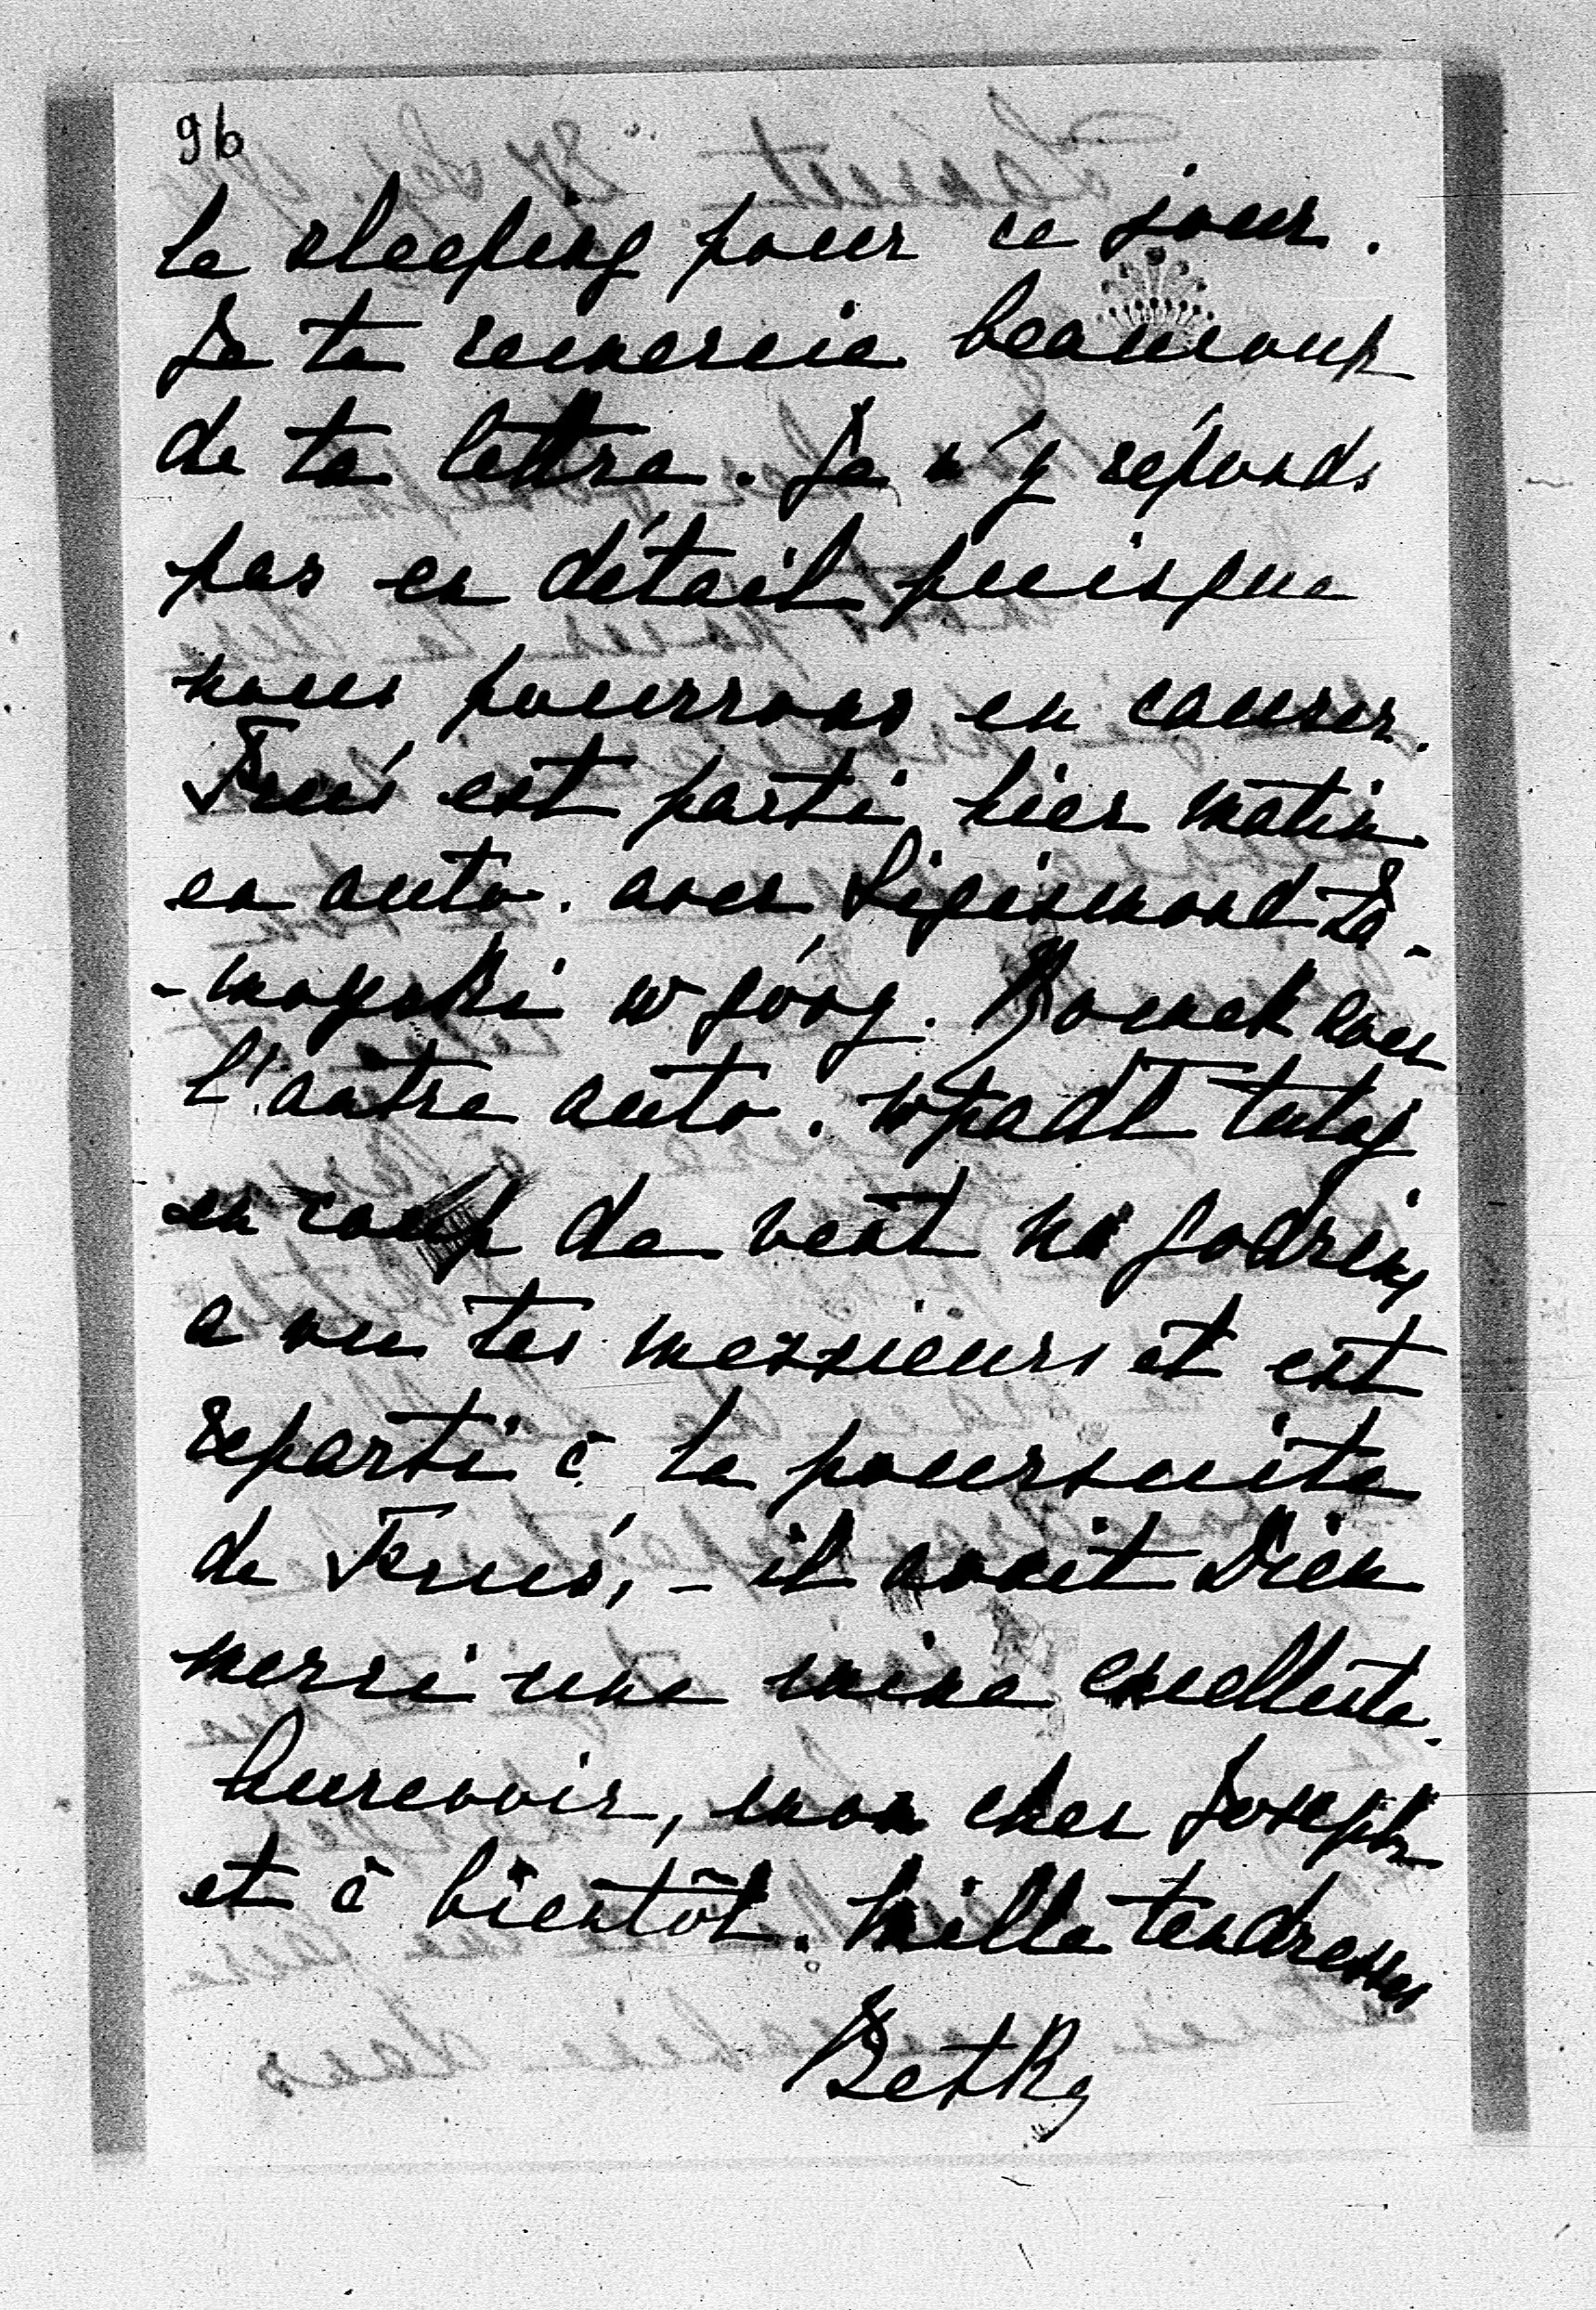 96
le sleeping pour ce jour.
Je te remercie beaucoup
de ta lettre. Je n'y réponds
pas en détail puisque
nous pourrons en causer.
est parti hier matin
en auto. avec Sigismond Za-
-moyski w góry. Romek avec
l'autre auto. wpadł tutaj
en coup de vent na godzinę
a vu tes messieurs et est
reparti à la poursuite
de - il avait Dieu
merci une mine excellente.
Aurevoir, mon cher Joseph
et à bientôt. Mille tendresses
Betka